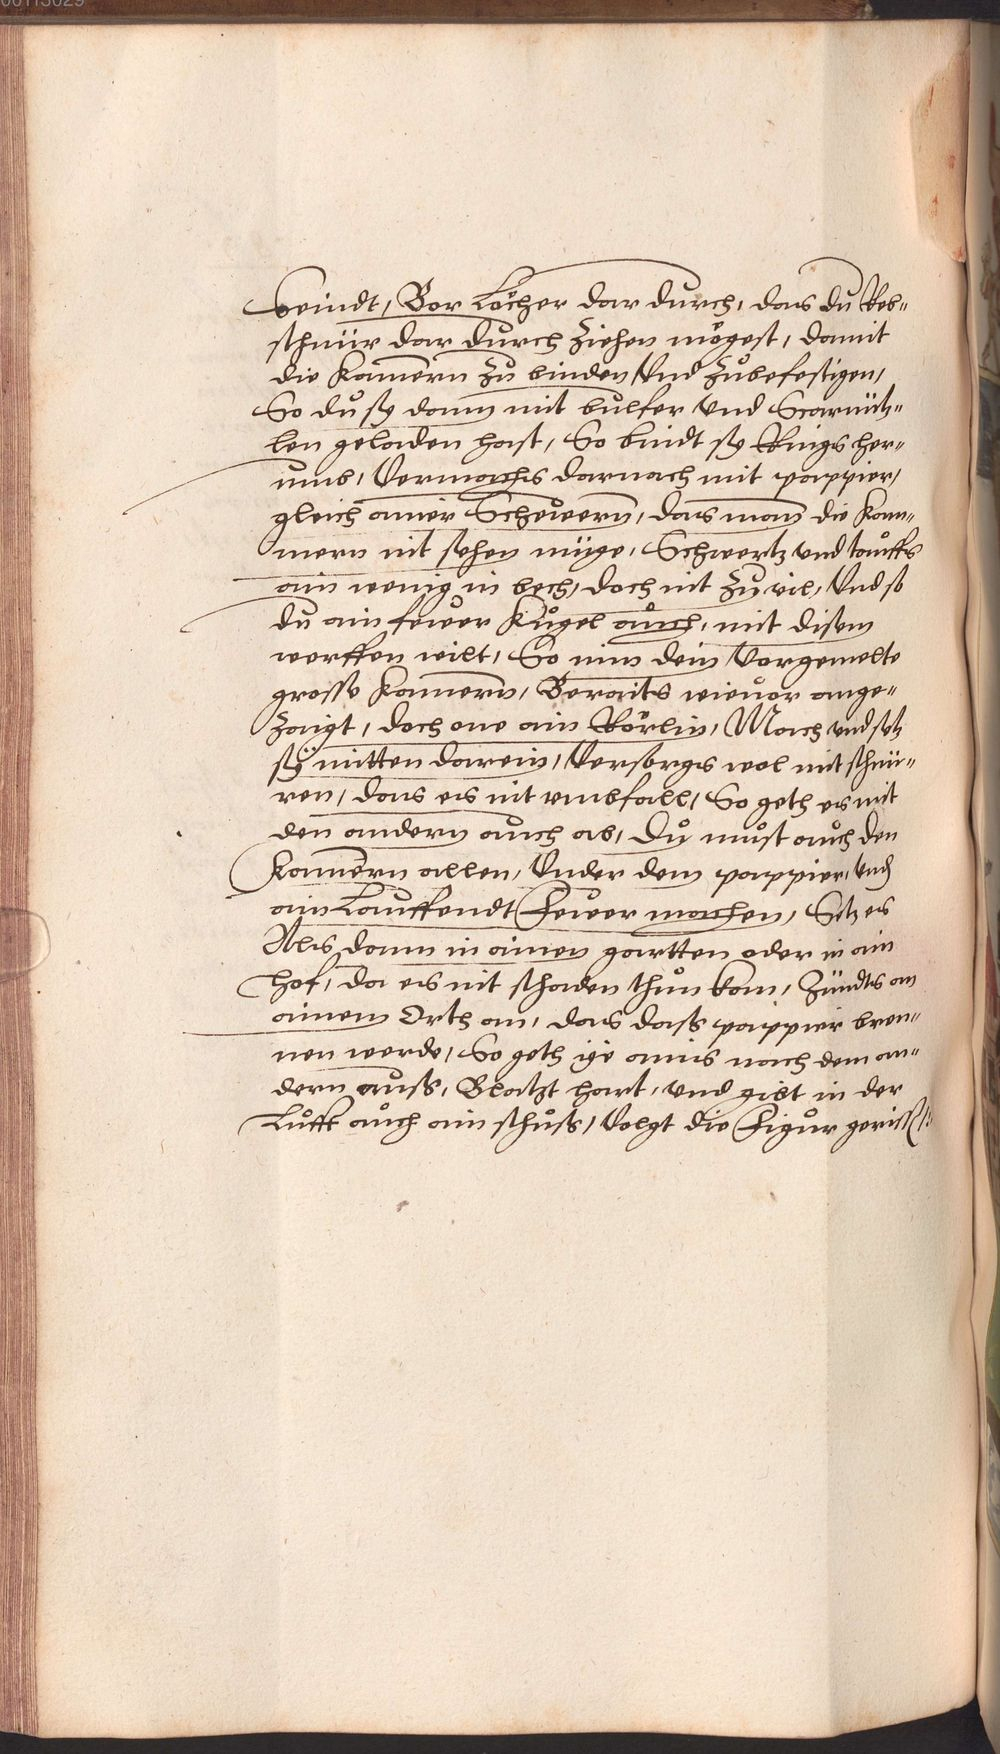 00113029
seindt, Bor Löcher dar durch, das du Reb-
schnür dar durch ziehen mögest, damit
die Kamern zu binden und zubefestigen,
So du sy dann mit bulfer und Scarnütz-
len geladen hast, So bindt sy Rings her-
umb, Vermachs darnach mit pappier,
gleich ainer Scheuern, das man die Kam-
mern nit sehen müge, Schwertz und tauffs
ain wenig in bech, doch nit zu vil, Und so
du ain fewer Kugel auch, mit disem
werffen wilt, So nim dein Vorgemelte
grosse Kamern, Beraits wieuor ange-
zaigt, doch one ain Rörlin, Mach und setz
sy mitten darein, Versorgs wol mit schnü-
ren, das es nit umbfall, So geth es mit
den andern auch ab, Du must auch den
Kamern allen, Under dem pappier, und
ain Lauffendt Fewer machen, Setz es
Als dann in ainen gartten oder in ain
hof, da es nit schaden thun kan, Zündts an
ainem Orth an, das dass pappier bren-
nen werde, So geth ye ains nach dem an-
dern auss, Blatzt hart, und gibt in der
Lufft auch ain schuss, Volgt die Figur